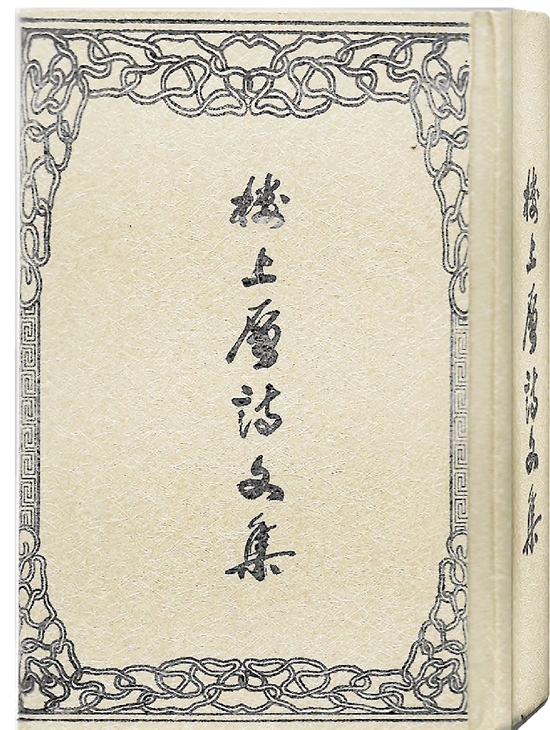 楼上层诗文集
楼上层诗文集